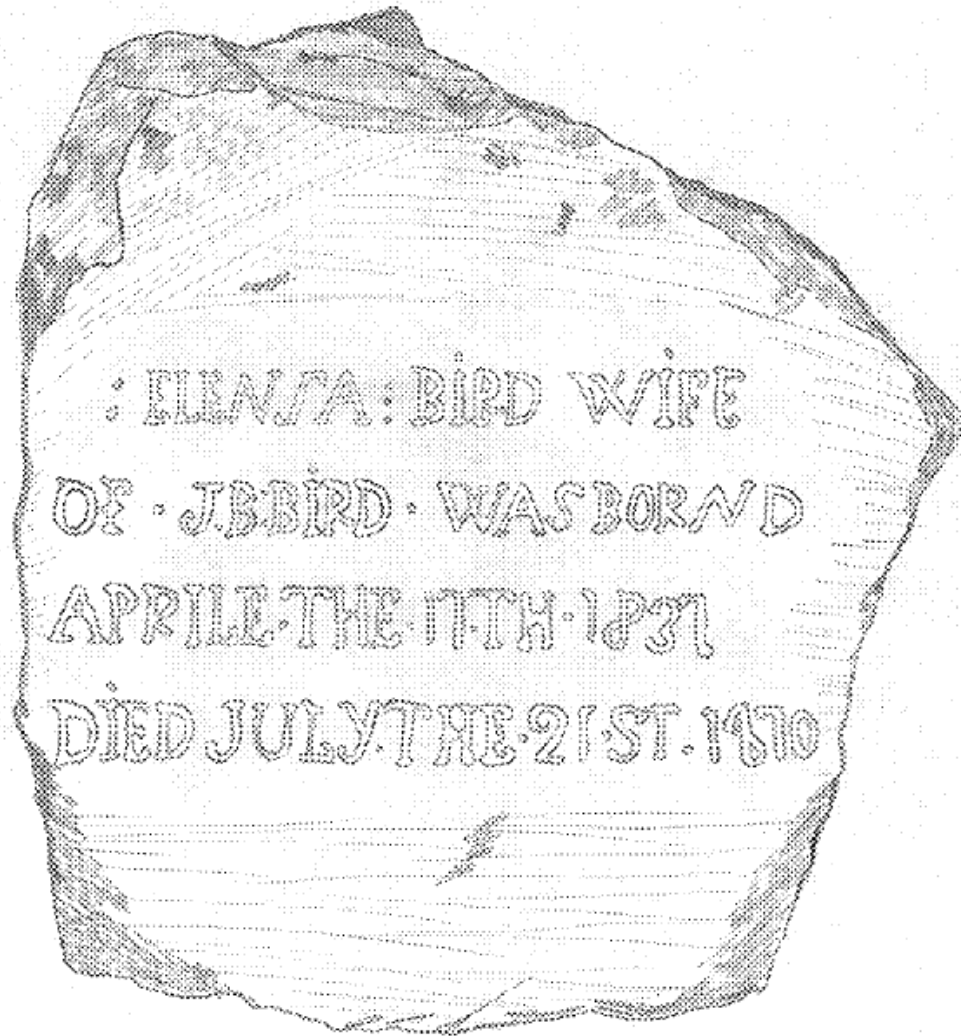 : ELENRA : BIRD WIFE
OF · J.B.BIRD · WAS BORND
APRILE·THE·17·TH·1831
DIED JULY·THE·21·ST·1870